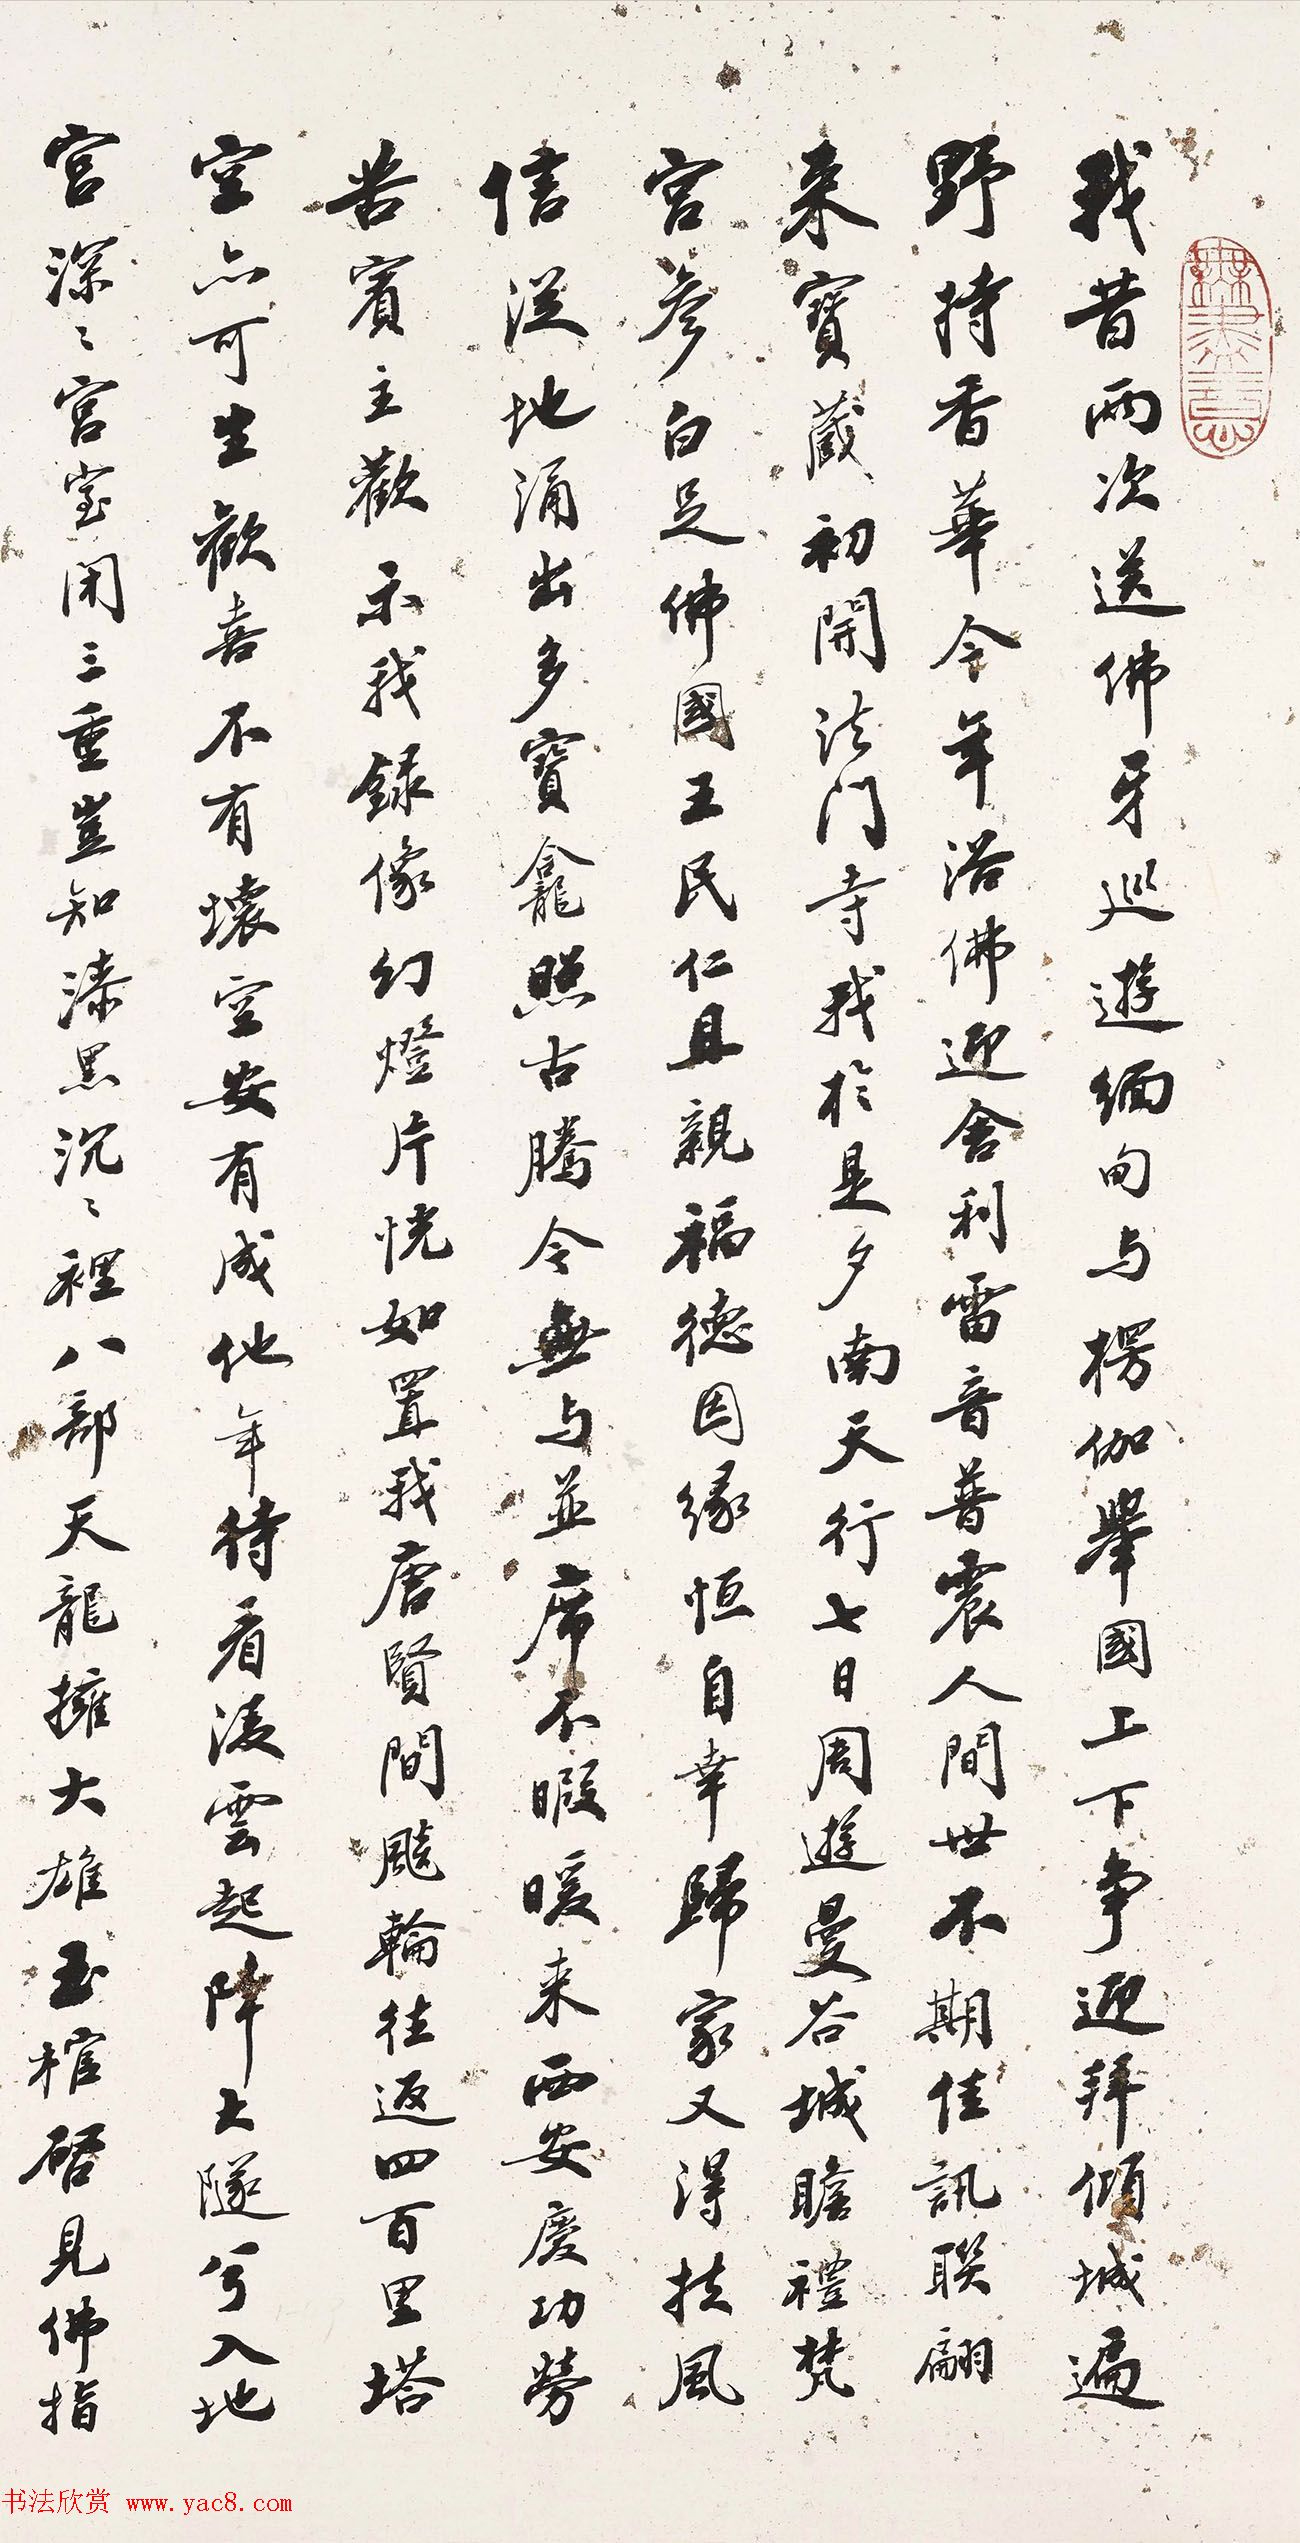 我昔两次送佛牙巡遊緬甸与楞伽舉國上下争迎拜傾城遍
野持香華今年浴佛迎舍利雷音普震人間世不期佳訊联翩
来寶藏初開法门寺我於是夕南天行七日周遊曼谷城瞻禮梵
宮参白足佛國王民仁且親福德因缘恒自幸歸家又得扶風
信從地涌出多寶龕照古腾今無与並席不暇暖来西安慶功勞
岩賓主歡示我録像幻燈片恍如置我唐賢間飈輪往返四百里塔
空亦可生歡喜不有壞空安有成他年待看凌雲起降大隧兮入地
宮深〻宮室闭三重豈知漆黑沉〻裡八部天龍擁大雄玉棺啓見佛指
無盡意
书法欣赏 www.yac8.com